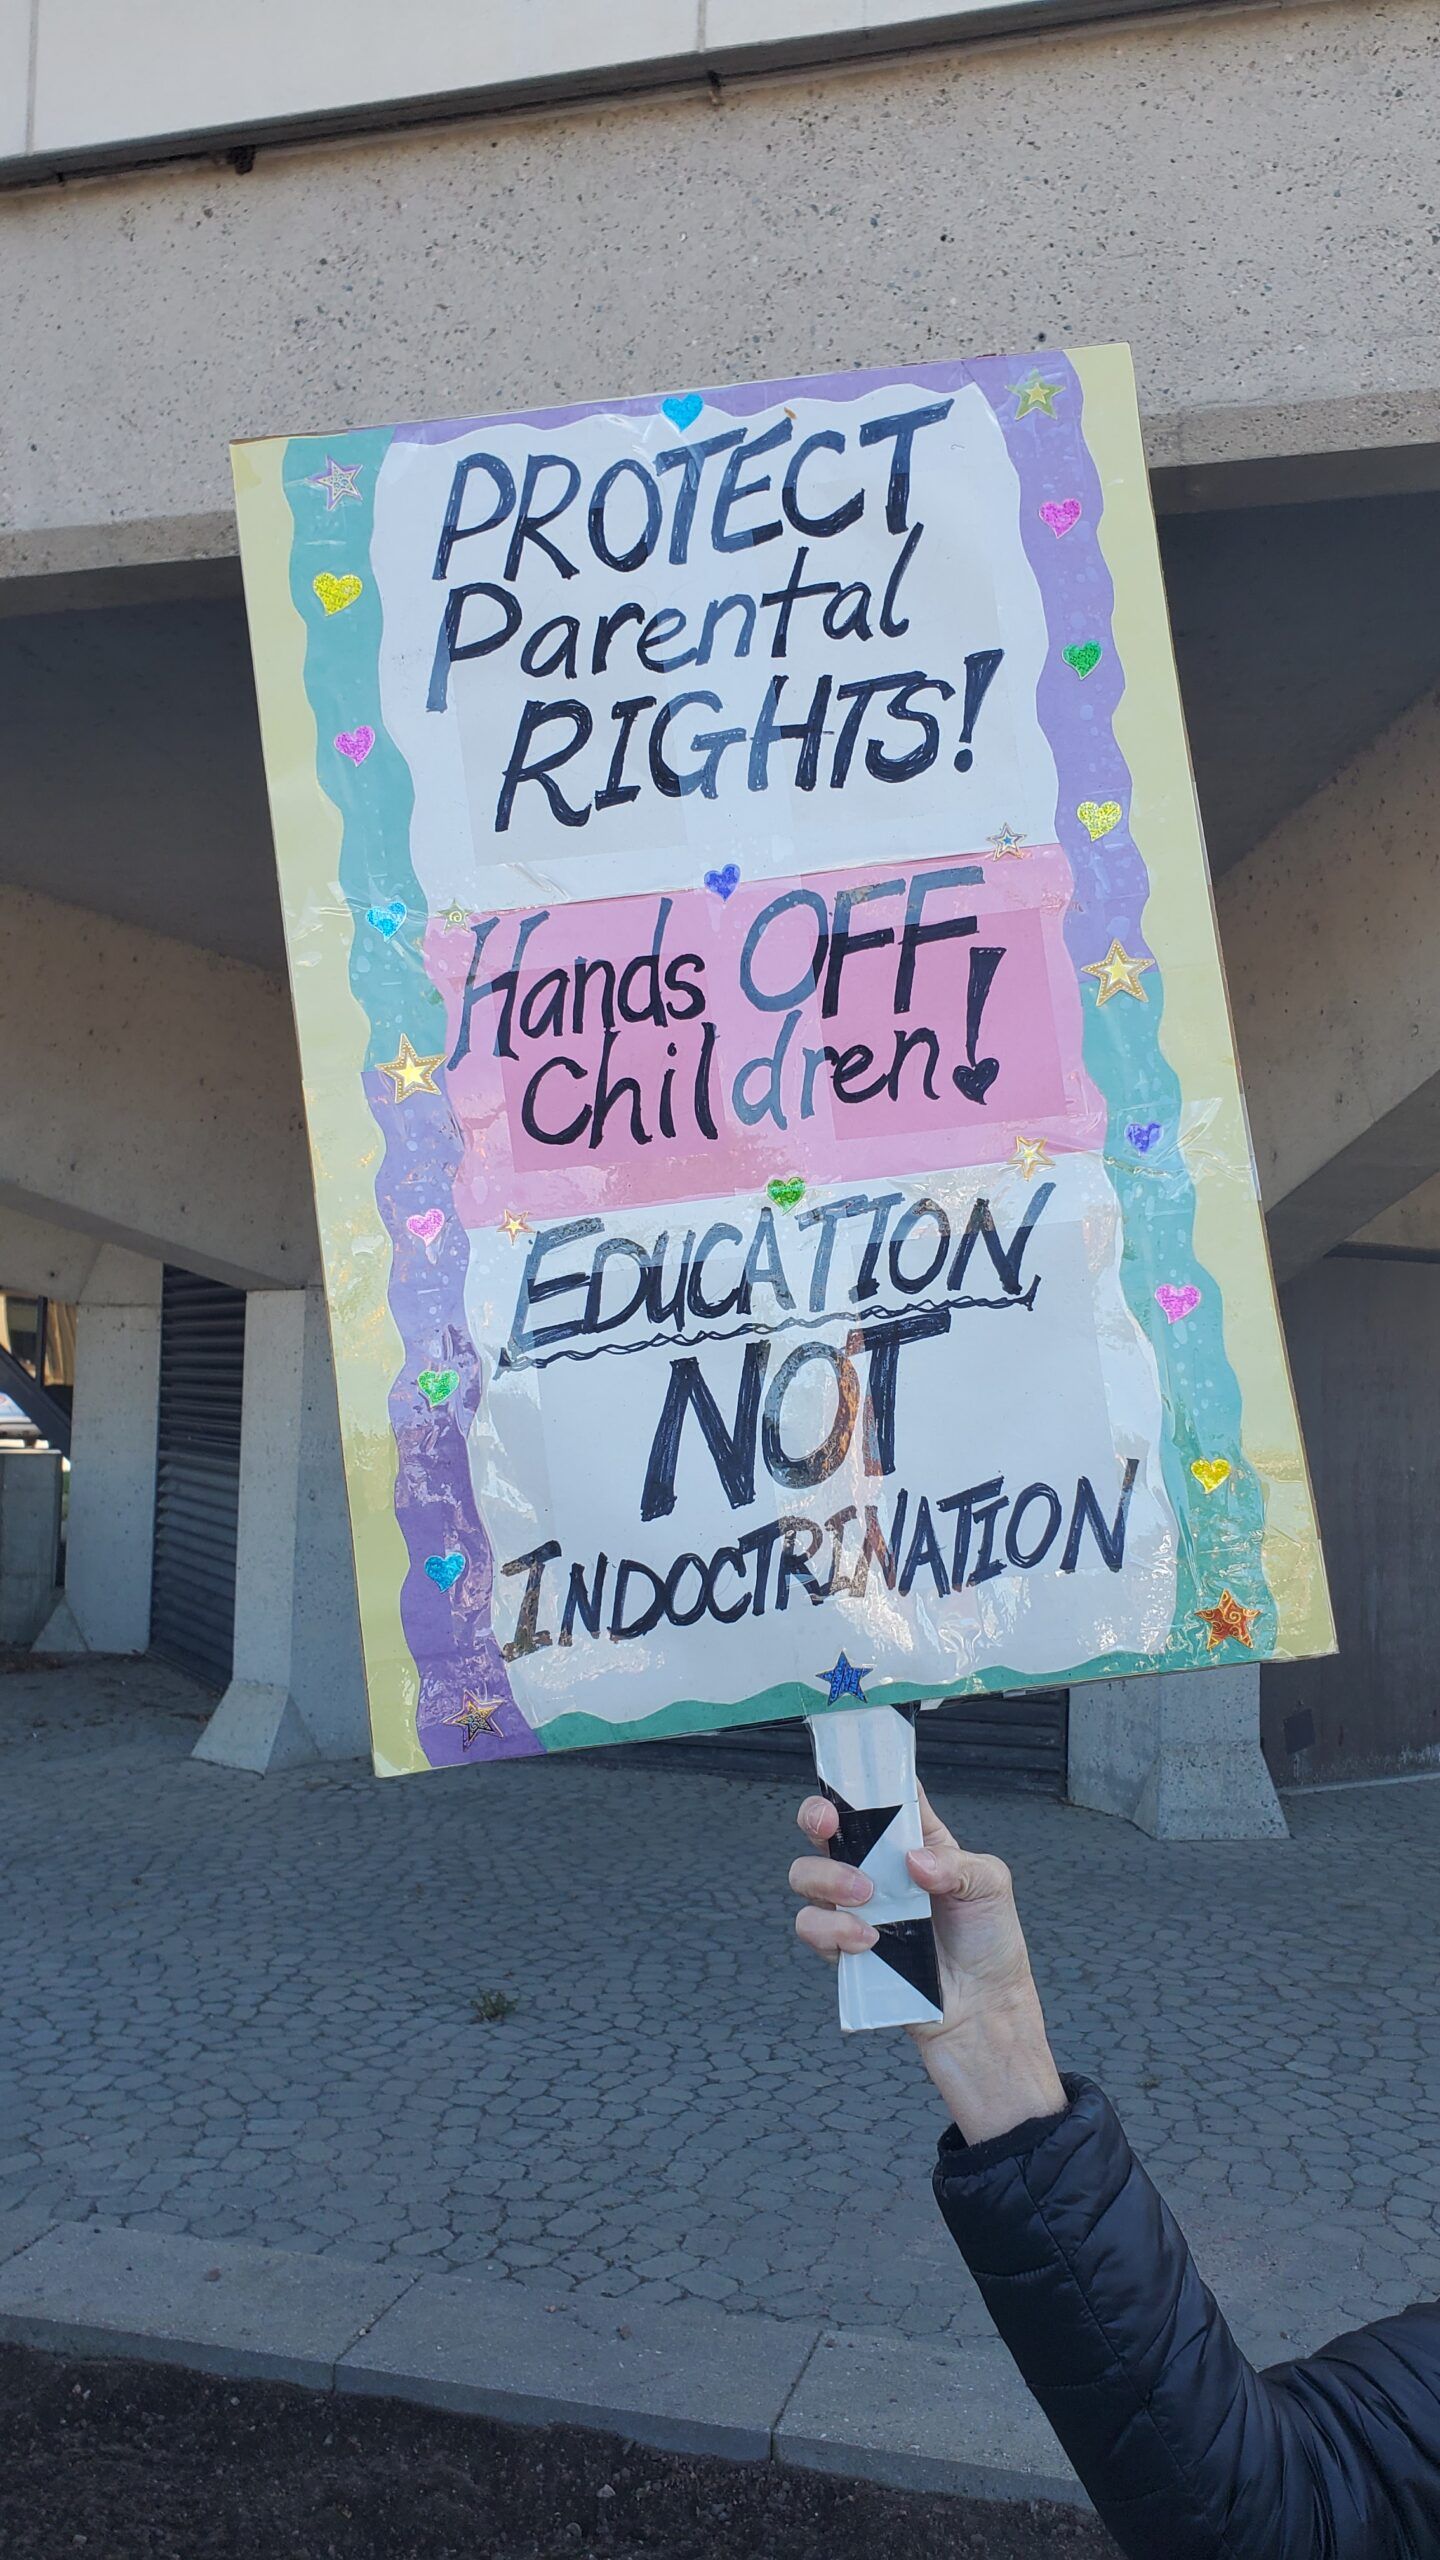 PROTECT
Parental
RIGHTS!
Hands OFF
Children!
EDUCATION
NOT
INDOCTRINATION